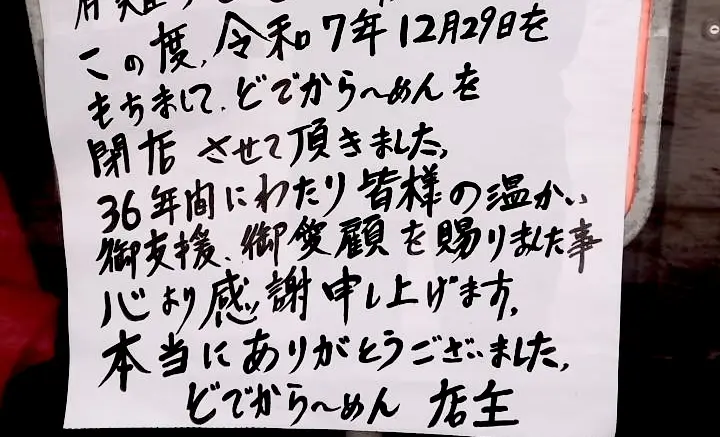 この度、令和7年12月29日を
もちまして、どでから〜めんを
閉店させて頂きました。
36年間にわたり皆様の温かい
御支援、御愛顧を賜りました事
心より感謝申し上げます。
本当にありがとうございました。
どでから〜めん 店主